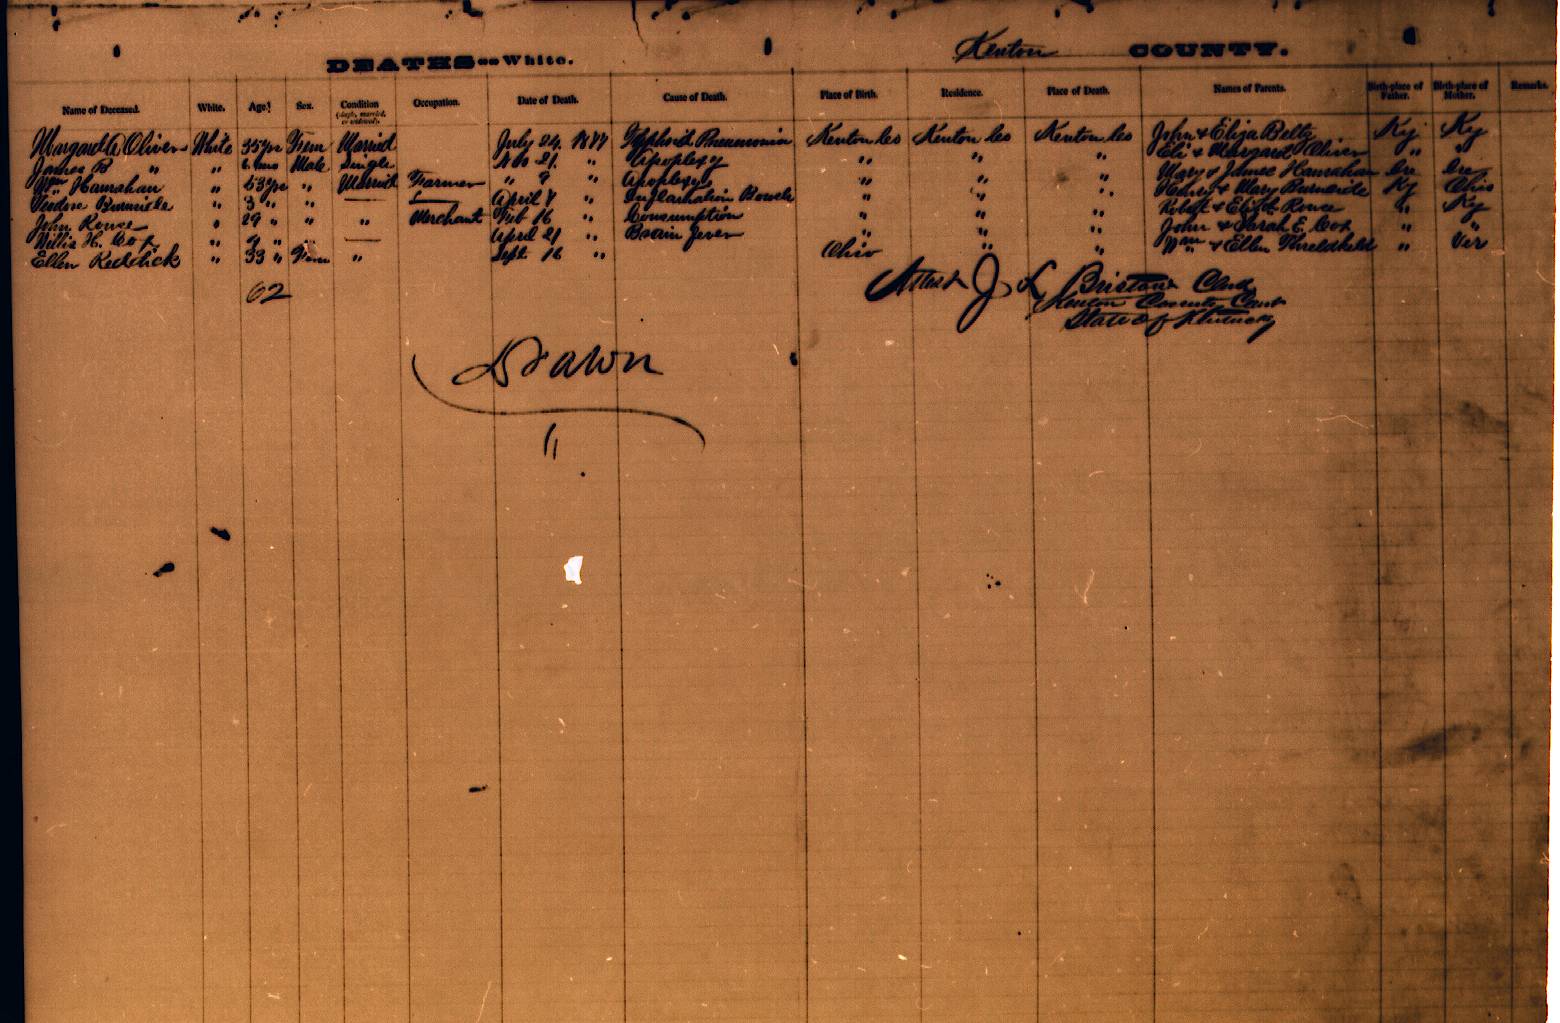 DEATHS--White. Kenton COUNTY.
Name of Deceased. White. Age. Sex. Condition (single, married, or widowed). Occupation. Date of Death. Cause of Death. Place of Birth. Residence. Place of Death. Names of Parents. Birth-place of Father. Birth-place of Mother. Remarks.
Margaret A Oliver White 35 yr Fem Married July 24 1877 Typhoid Pneumonia Kenton Co Kenton Co Kenton Co John & Eliza Betty Ky Ky
James B " " 6 mo Male Single Nov 21 " Apoplexy " " " Eli & Margaret Oliver " "
Wm Hanrahan " 53 yr " Married Farmer " 9 " Apoplexy " " " Mary & James Hanrahan Ire Ire
Burnside " 3 " " — April 8 " Inflamation Bowels " " " Henry & Mary Burnside Ky Ohio
John Rouse " 29 " " " Merchant Feb 16 " Consumption " " " Robert & Elizth Rouse " Ky
Willie H. Cox " " " — April 21 " Brain fever " " " John & Sarah E. Cox " "
Ellen Reddick " 33 " Fem " Sept 16 " Ohio " " Wm & Ellen Threldkeld " Ver
62
Attest J L Bristow Clerk
Kenton County Court
State of Kentucky
Drawn